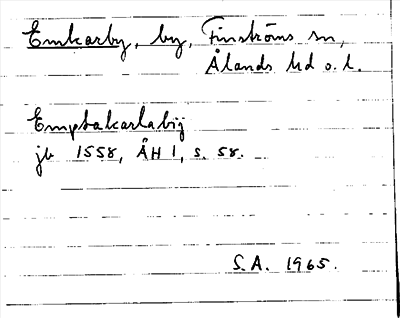 Emkarby, by, Finströms sn,
Ålands hd o. l.
Empbakarlabij
jb 1558, ÅH 1, s. 58.
S.A. 1965.